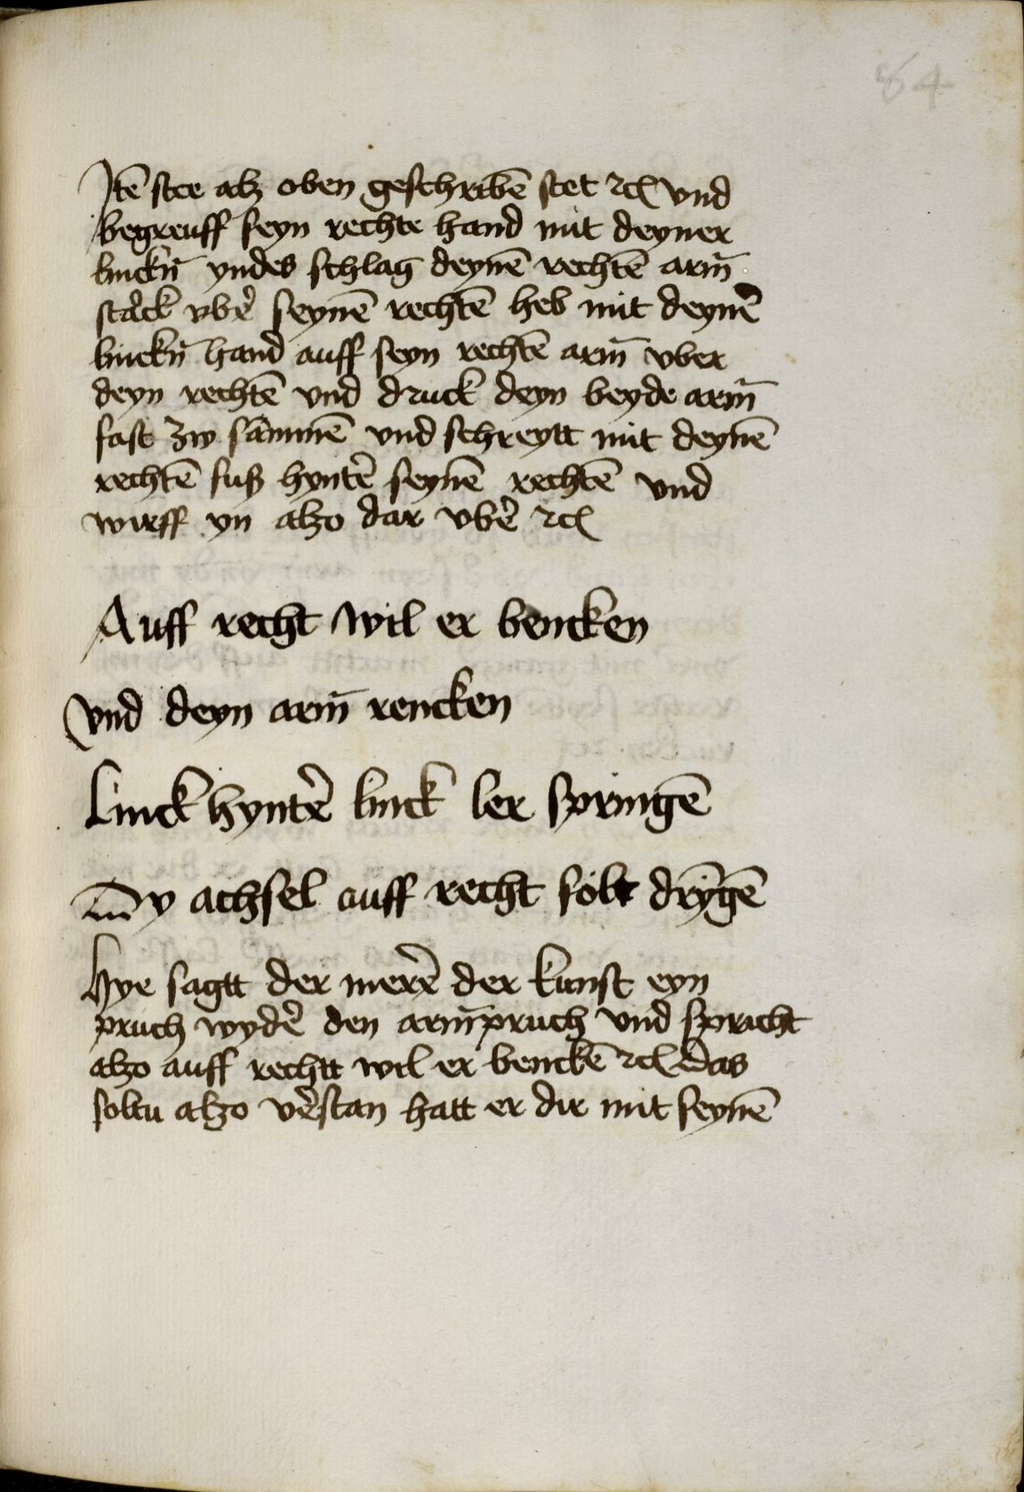 84
Jtē stee alz oben geschribē stet ꝛc̄ vnd
begreuff seyn rechte hand mit deyner
linckn̄ yndes schlag deynē rechtē arm̄
starck vbẽ seynē rechtē heb mit deynẽ
linckn̄ hand auff seyn rechtē arm̄ vber
deyn rechtē vnd druck deyn beyde arm̄
fast zw sāmmē vnd schreytt mit deynē
rechtē fuß hyntẽ seynē rechtē vnd
wirff yn alzo dar vbẽ ꝛc̄
Auff recht wil er bencken
vnd deyn arm̄ rencken
Linck hyntẽ linck ler springē
achsel auff recht solt drȳgē
Hye sagtt der merẽ der kunst eyn
pruch wydẽ den arm̄pruch vnd spricht
alzo auff rechtt wil er benckē ꝛc̄ das
soltu alzo vẽstan hatt er dir mit seynē